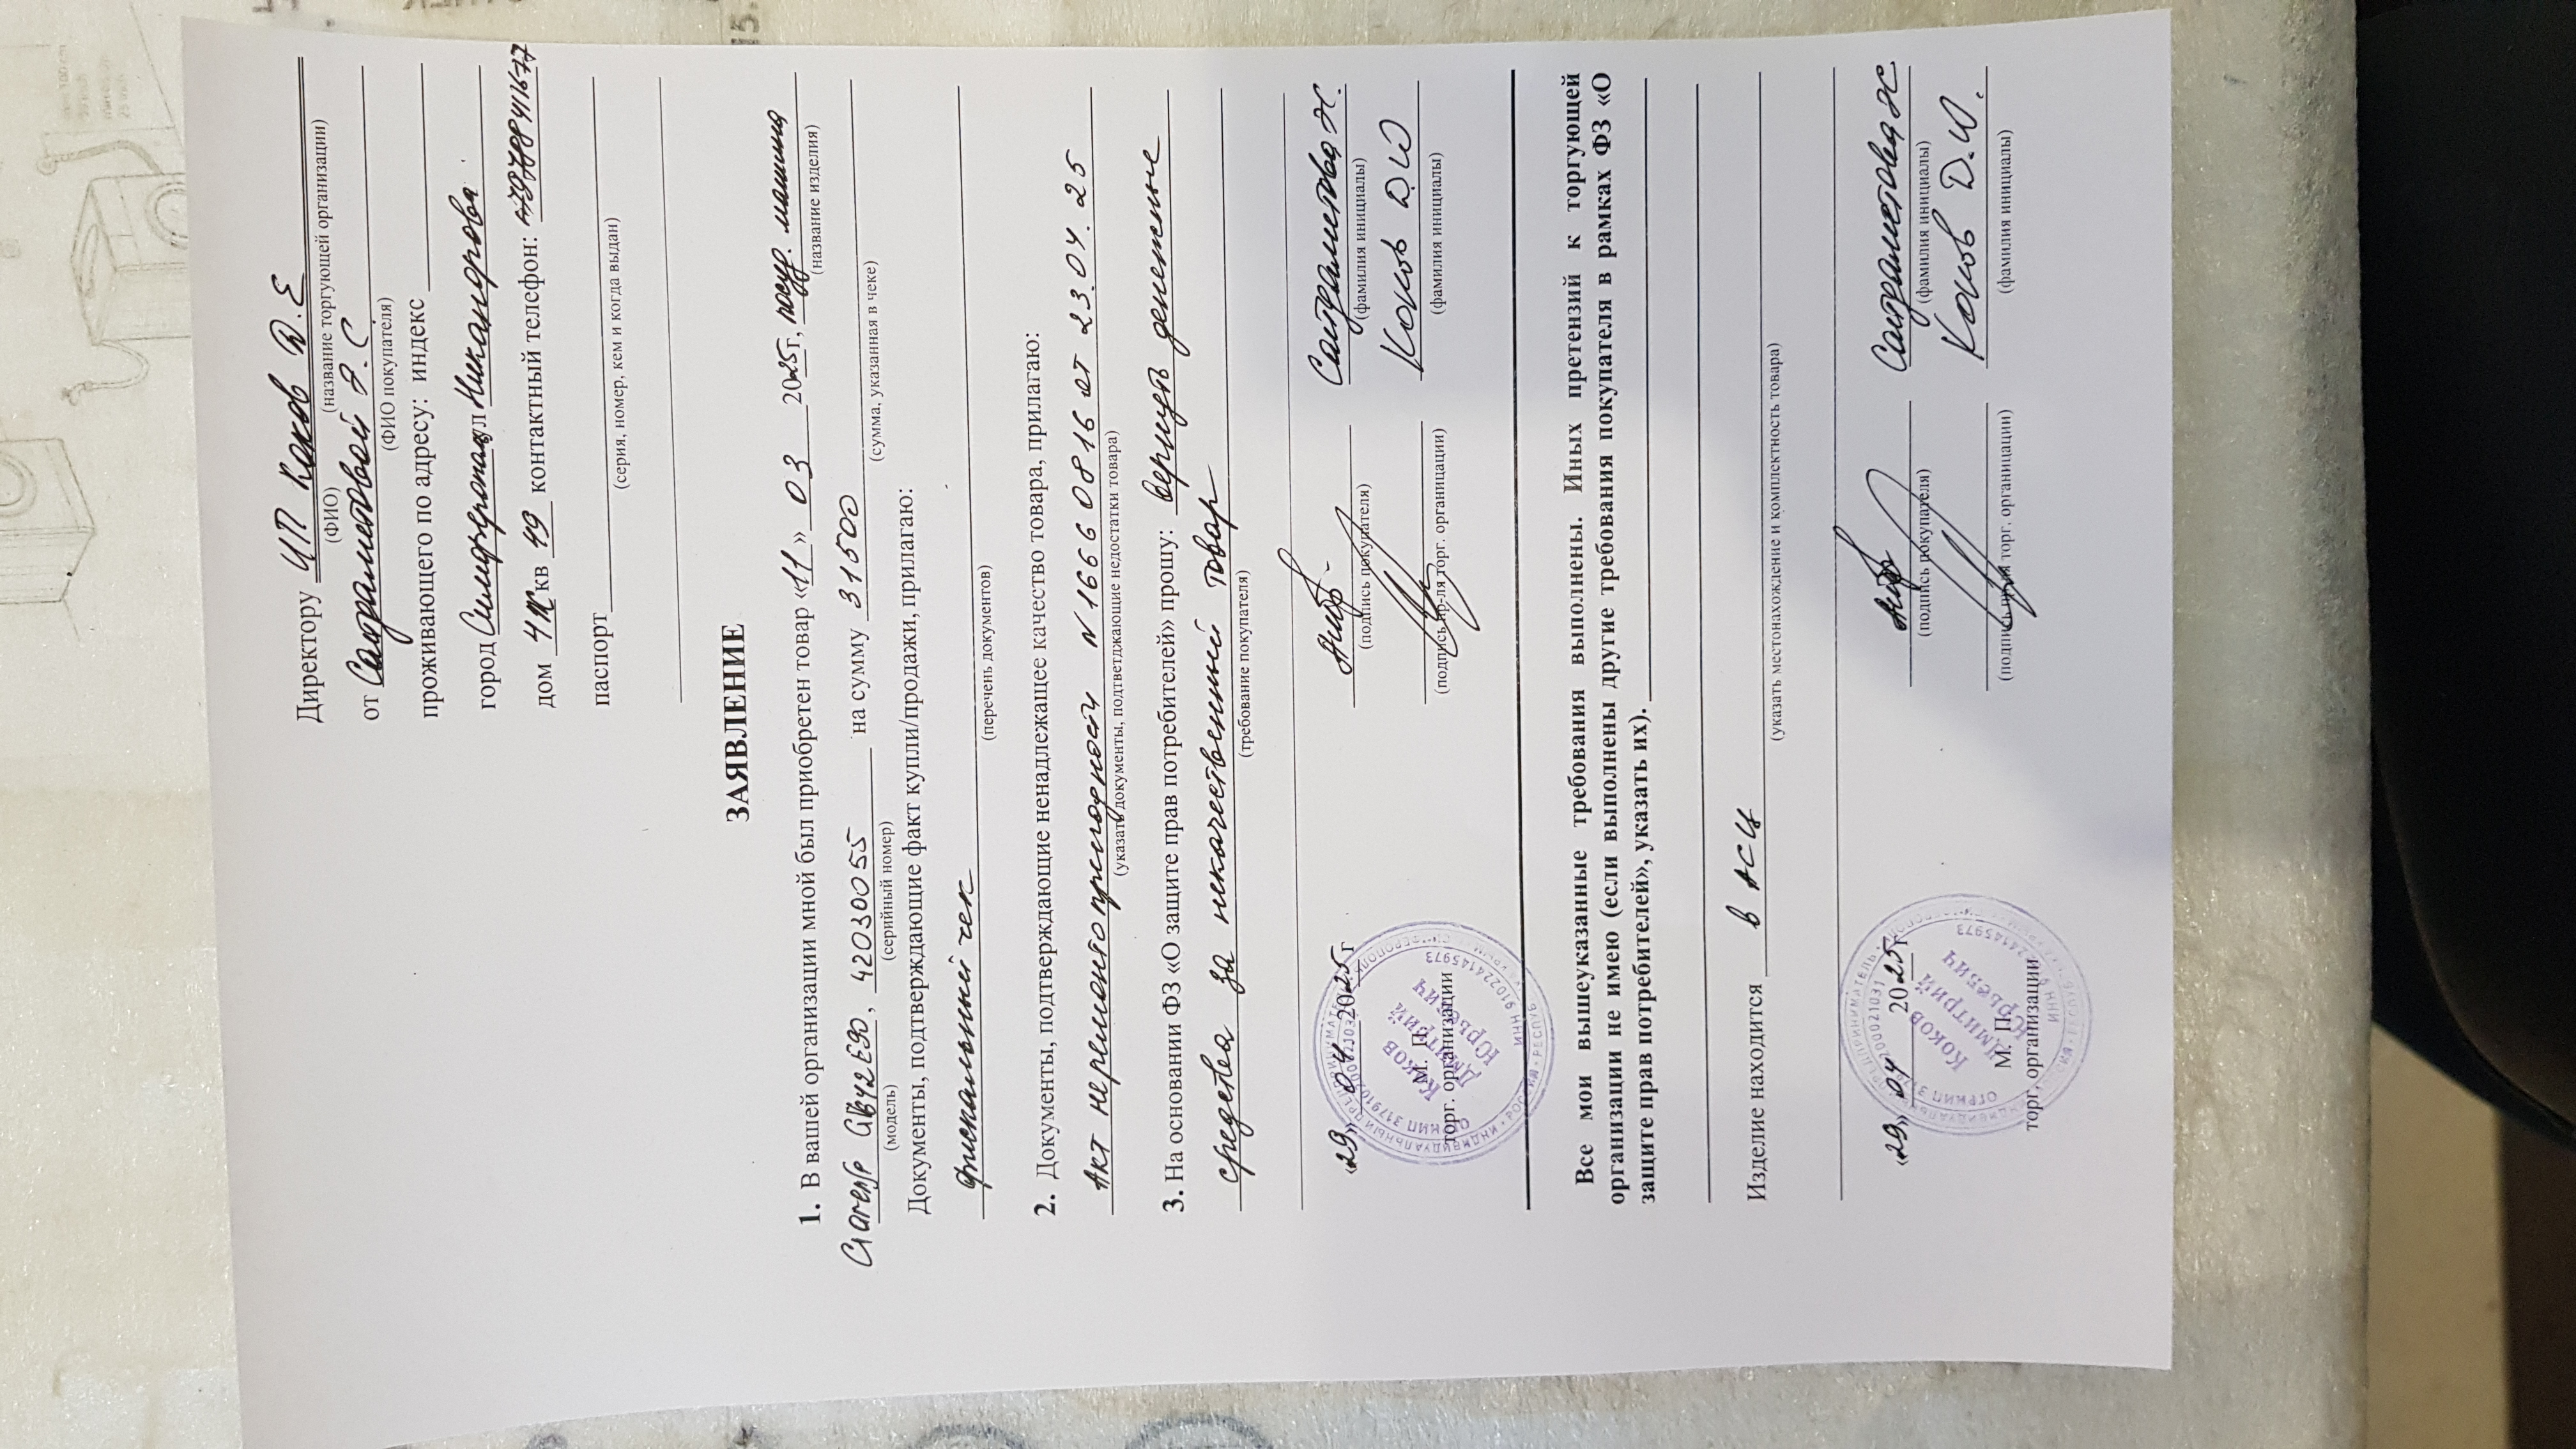 Директору ИП Коков
(ФИО) (название торгующей организации)
от Саидаметовой Э.С
(ФИО покупателя)
проживающего по адресу: индекс
город Симферополь ул Никандрова
дом кв 49 контактный телефон:
паспорт
(серия, номер, кем и когда выдан)
ЗАЯВЛЕНИЕ
1. В вашей организации мной был приобретен товар «11» 03 2025г, посуд. машина
(название изделия)
, 420530055 на сумму 31500
(модель) (серийный номер) (сумма, указанная в чеке)
Документы, подтверждающие факт купли/продажи, прилагаю:
фискальный чек
(перечень документов)
2. Документы, подтверждающие ненадлежащее качество товара, прилагаю:
Акт неремонтопригодности N 16660816 от 23.04.25
(указать документы, подтветджающие недостатки товара)
3. На основании ФЗ «О защите прав потребителей» прошу: Вернуть денежные
средства за некачественный товар
(требование покупателя)
«29» 04 2025г Саидаметова
(подпись покупателя) (фамилия инициалы)
М. П. Коков Д.Ю
торг. организации (подпись пр-ля торг. органицации) (фамилия инициалы)
Все мои вышеуказанные требования выполнены. Иных претензий к торгующей
организации не имею (если выполнены другие требования покупателя в рамках ФЗ «О
защите прав потребителей», указать их).
Изделие находится в АСЦ
(указать местонахождение и комплектность товара)
«29» 04 2025г Саидаметова
(подпись покупателя) (фамилия инициалы)
М. П. Коков Д.Ю.
торг. организации (подпись торг. органицации) (фамилия инициалы)
Коков
Дмитрий
Юрьевич
Коков
Дмитрий
Юрьевич